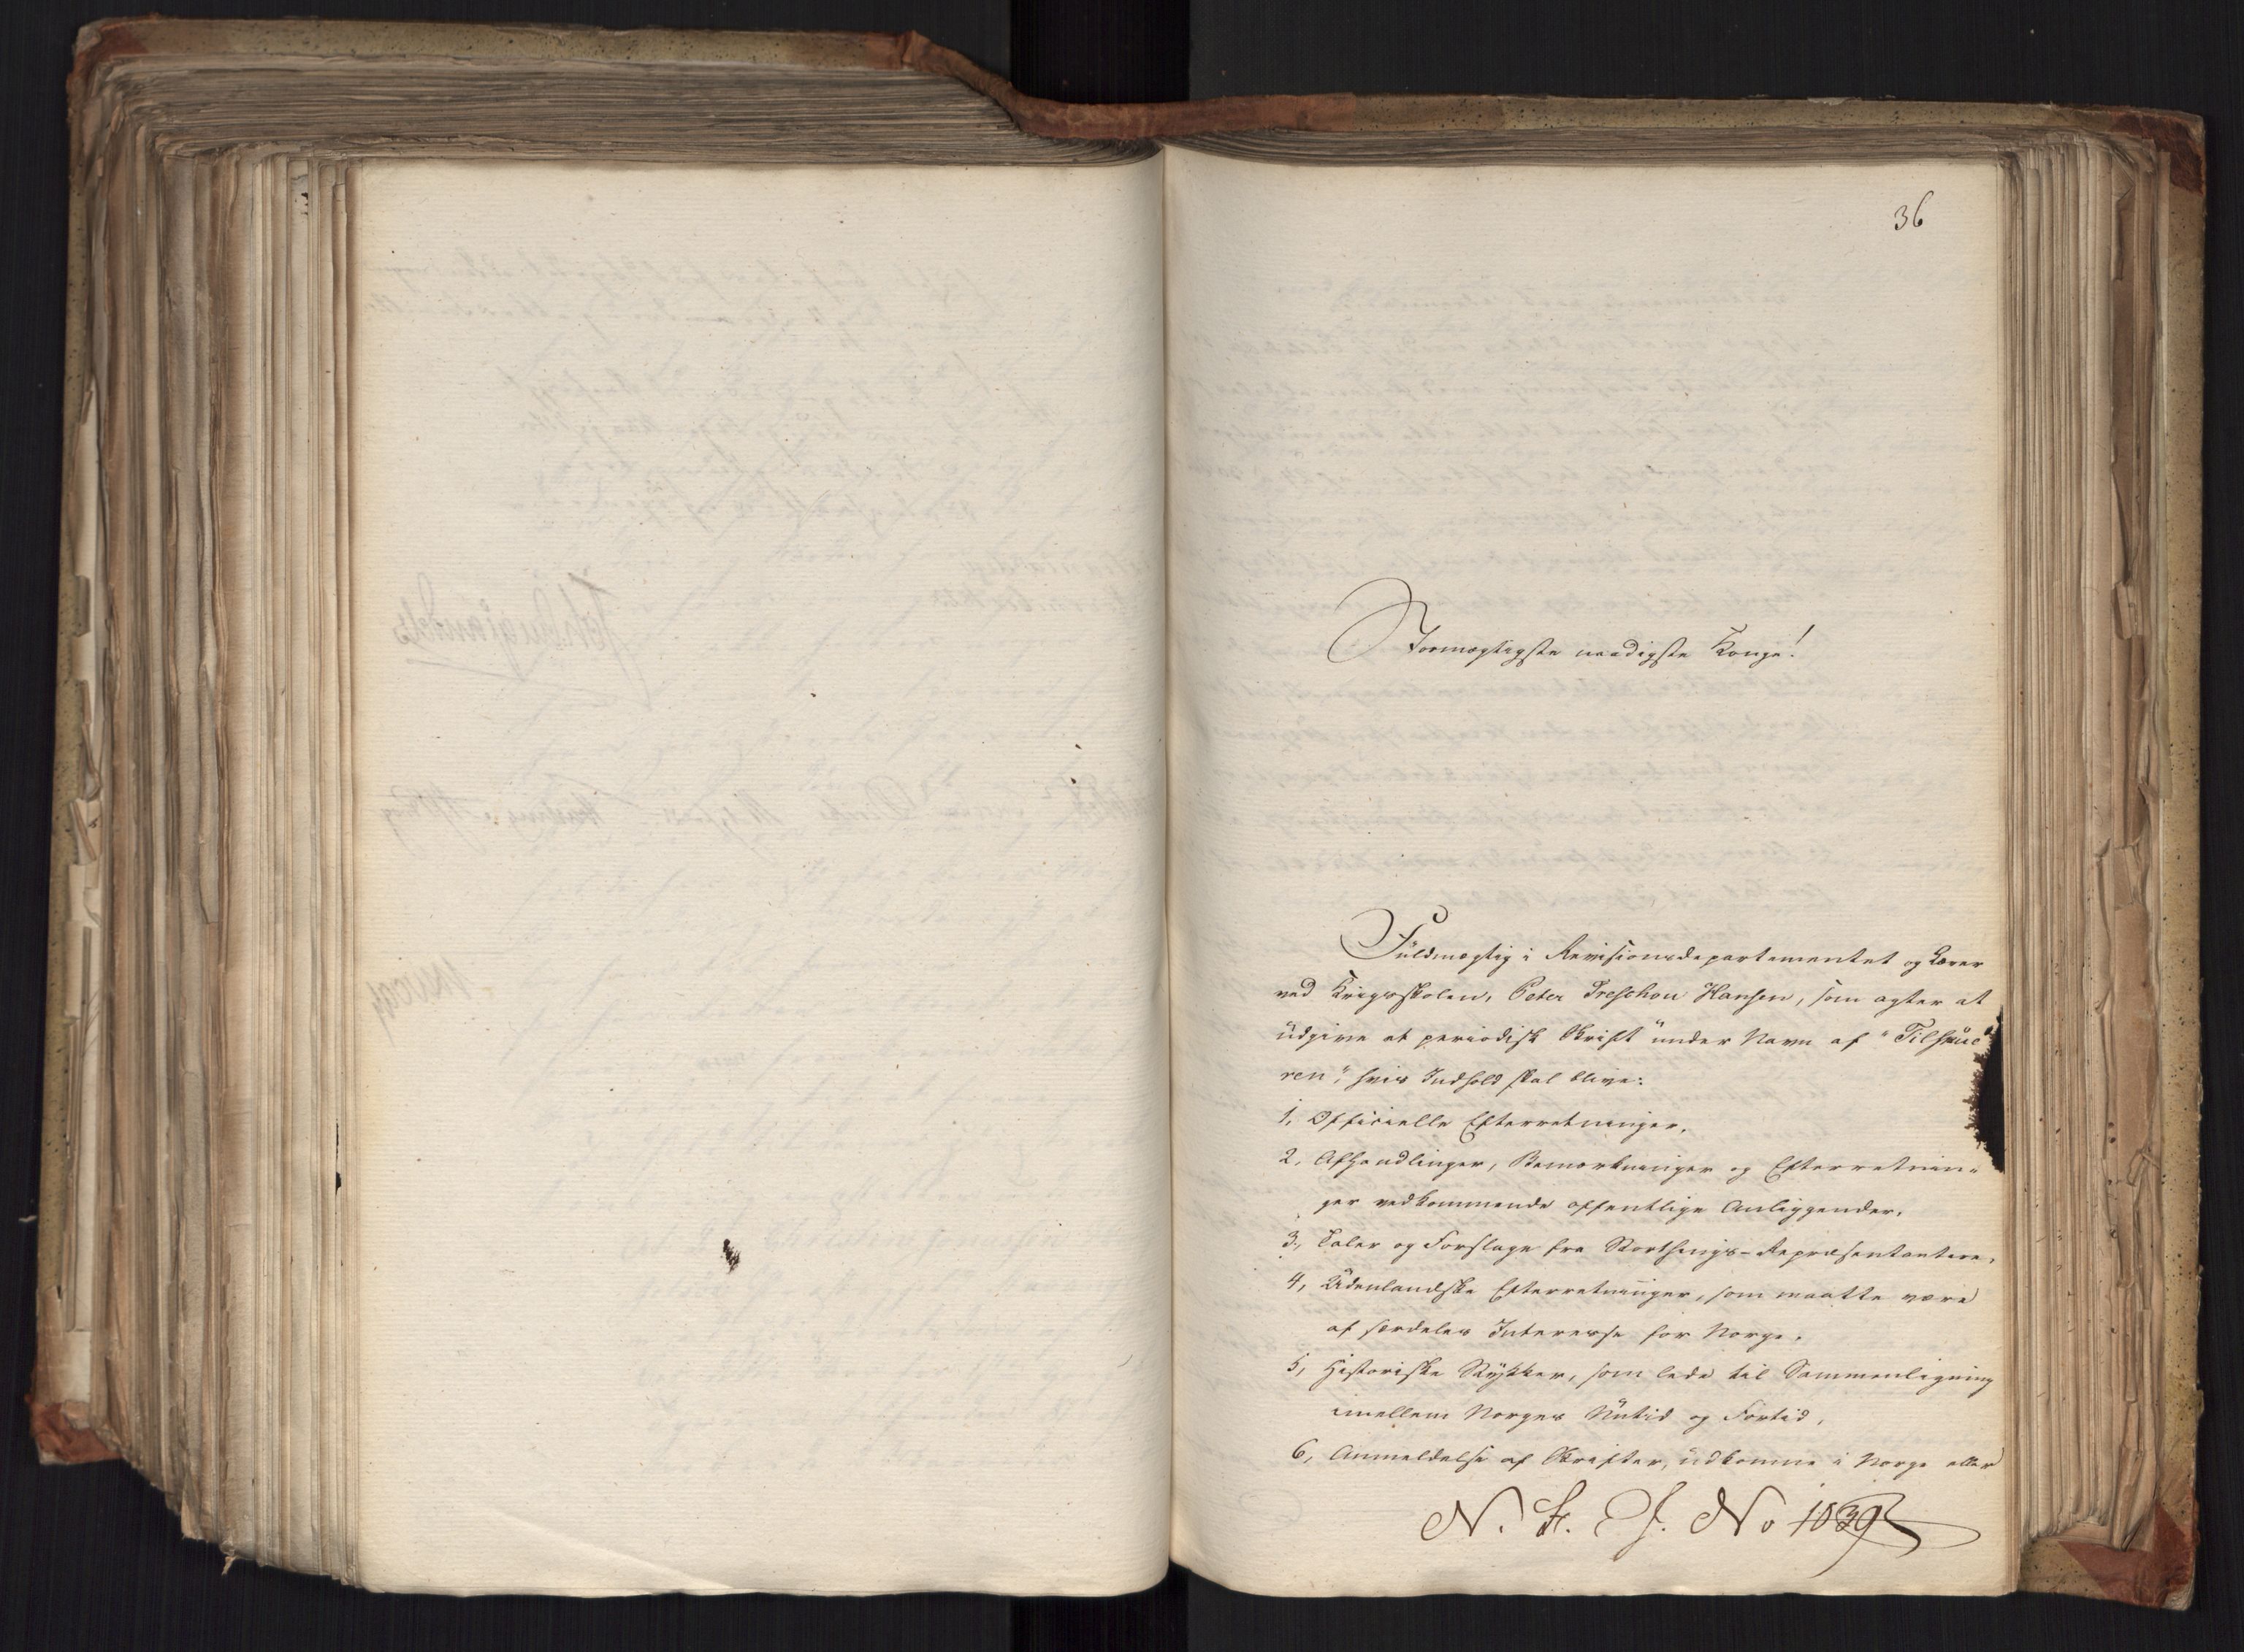 36
Stormægtigste naadigste Konge!
Fuldmægtig i Revisionsdepartementet og Lærer
ved Krigsskolen, Peter Treschou Hansen, som agter at
udgive et periodisk Skrift under Navn af "Tilskue
ren", hvis Indhold skal blive:
1, Officielle Efterretninger.
2, Afhandlinger, Bemærkninger og Efterretnin-
ger vedkommende offentlige Anliggender.
3, Taler og Forslage fra Storthings-Repræsentantere.
4, Udenlandske Efterretninger, som maatte være
af særdeles Interesse for Norge.
5, Historiske Stykker, som lede til Sammenligning
imellem Norges Nutid og Fortid,
6, Anmeldelse af Skrifter, udkomne i Norge eller
N. St. J. No 1039